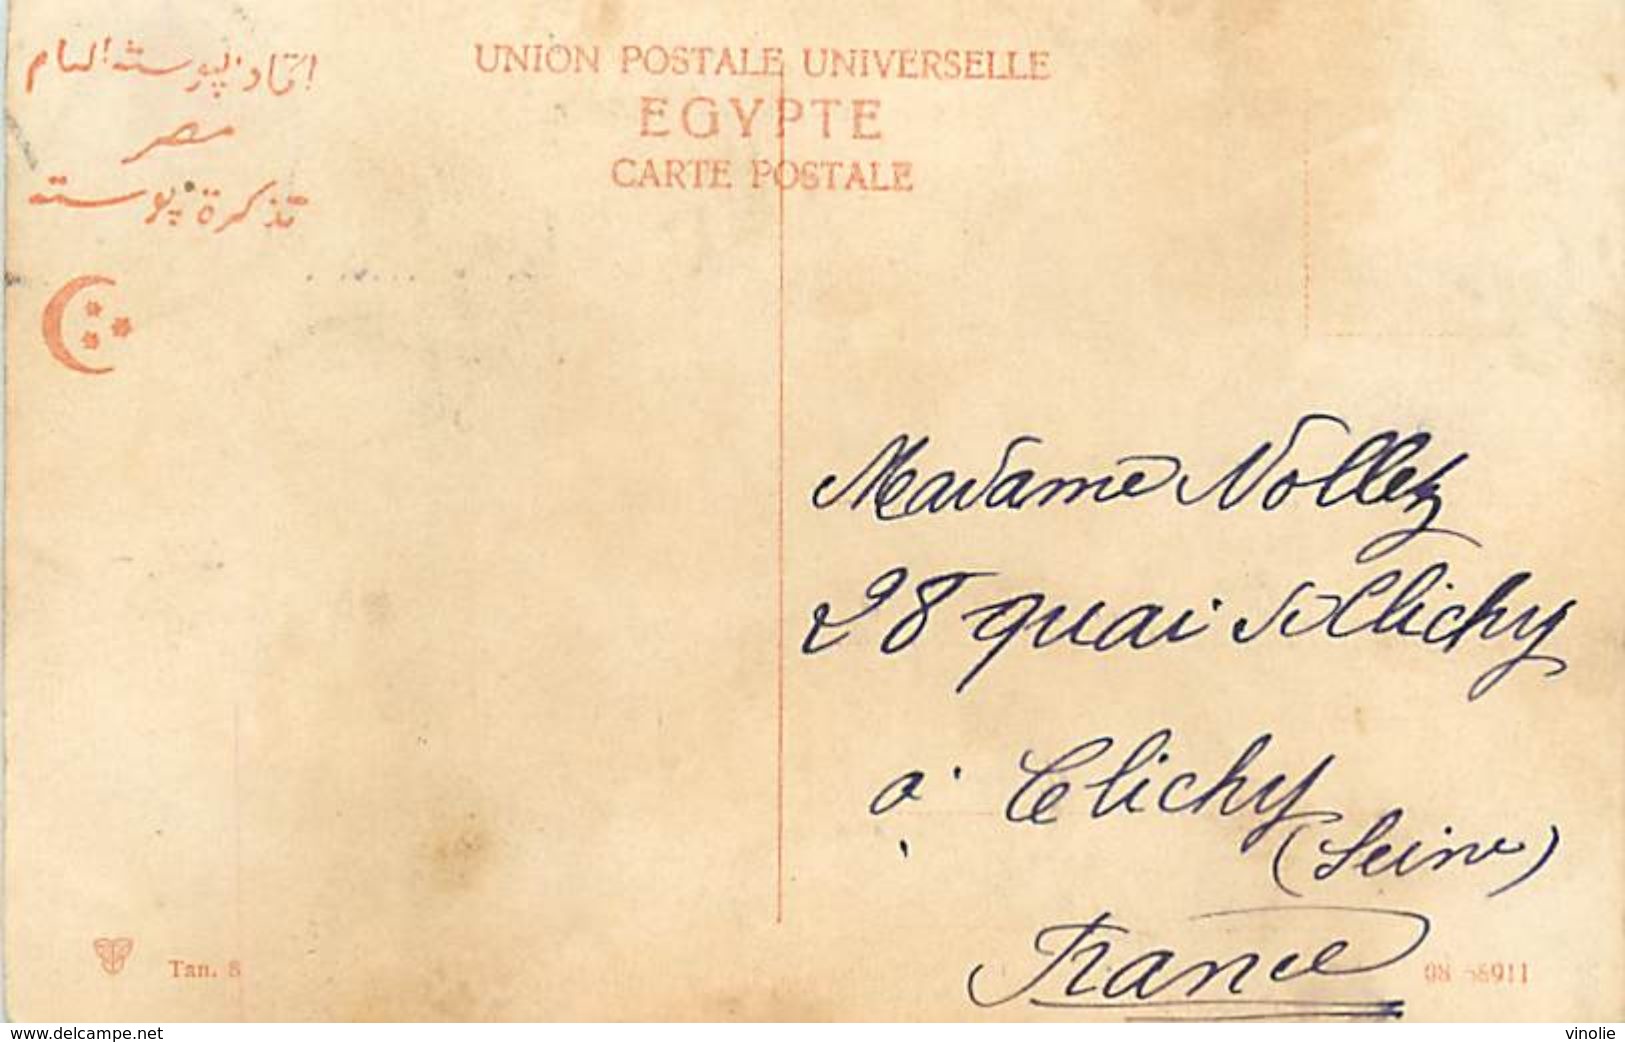 UNION POSTALE UNIVERSELLE
EGYPTE
CARTE POSTALE
اتحاد الپوستة العام
مصر
تذكرة پوستة
Madame Nollez
28 quai de Clichy
à Clichy
(Seine)
France
Tan. 8
www.delcampe.net
vinolie